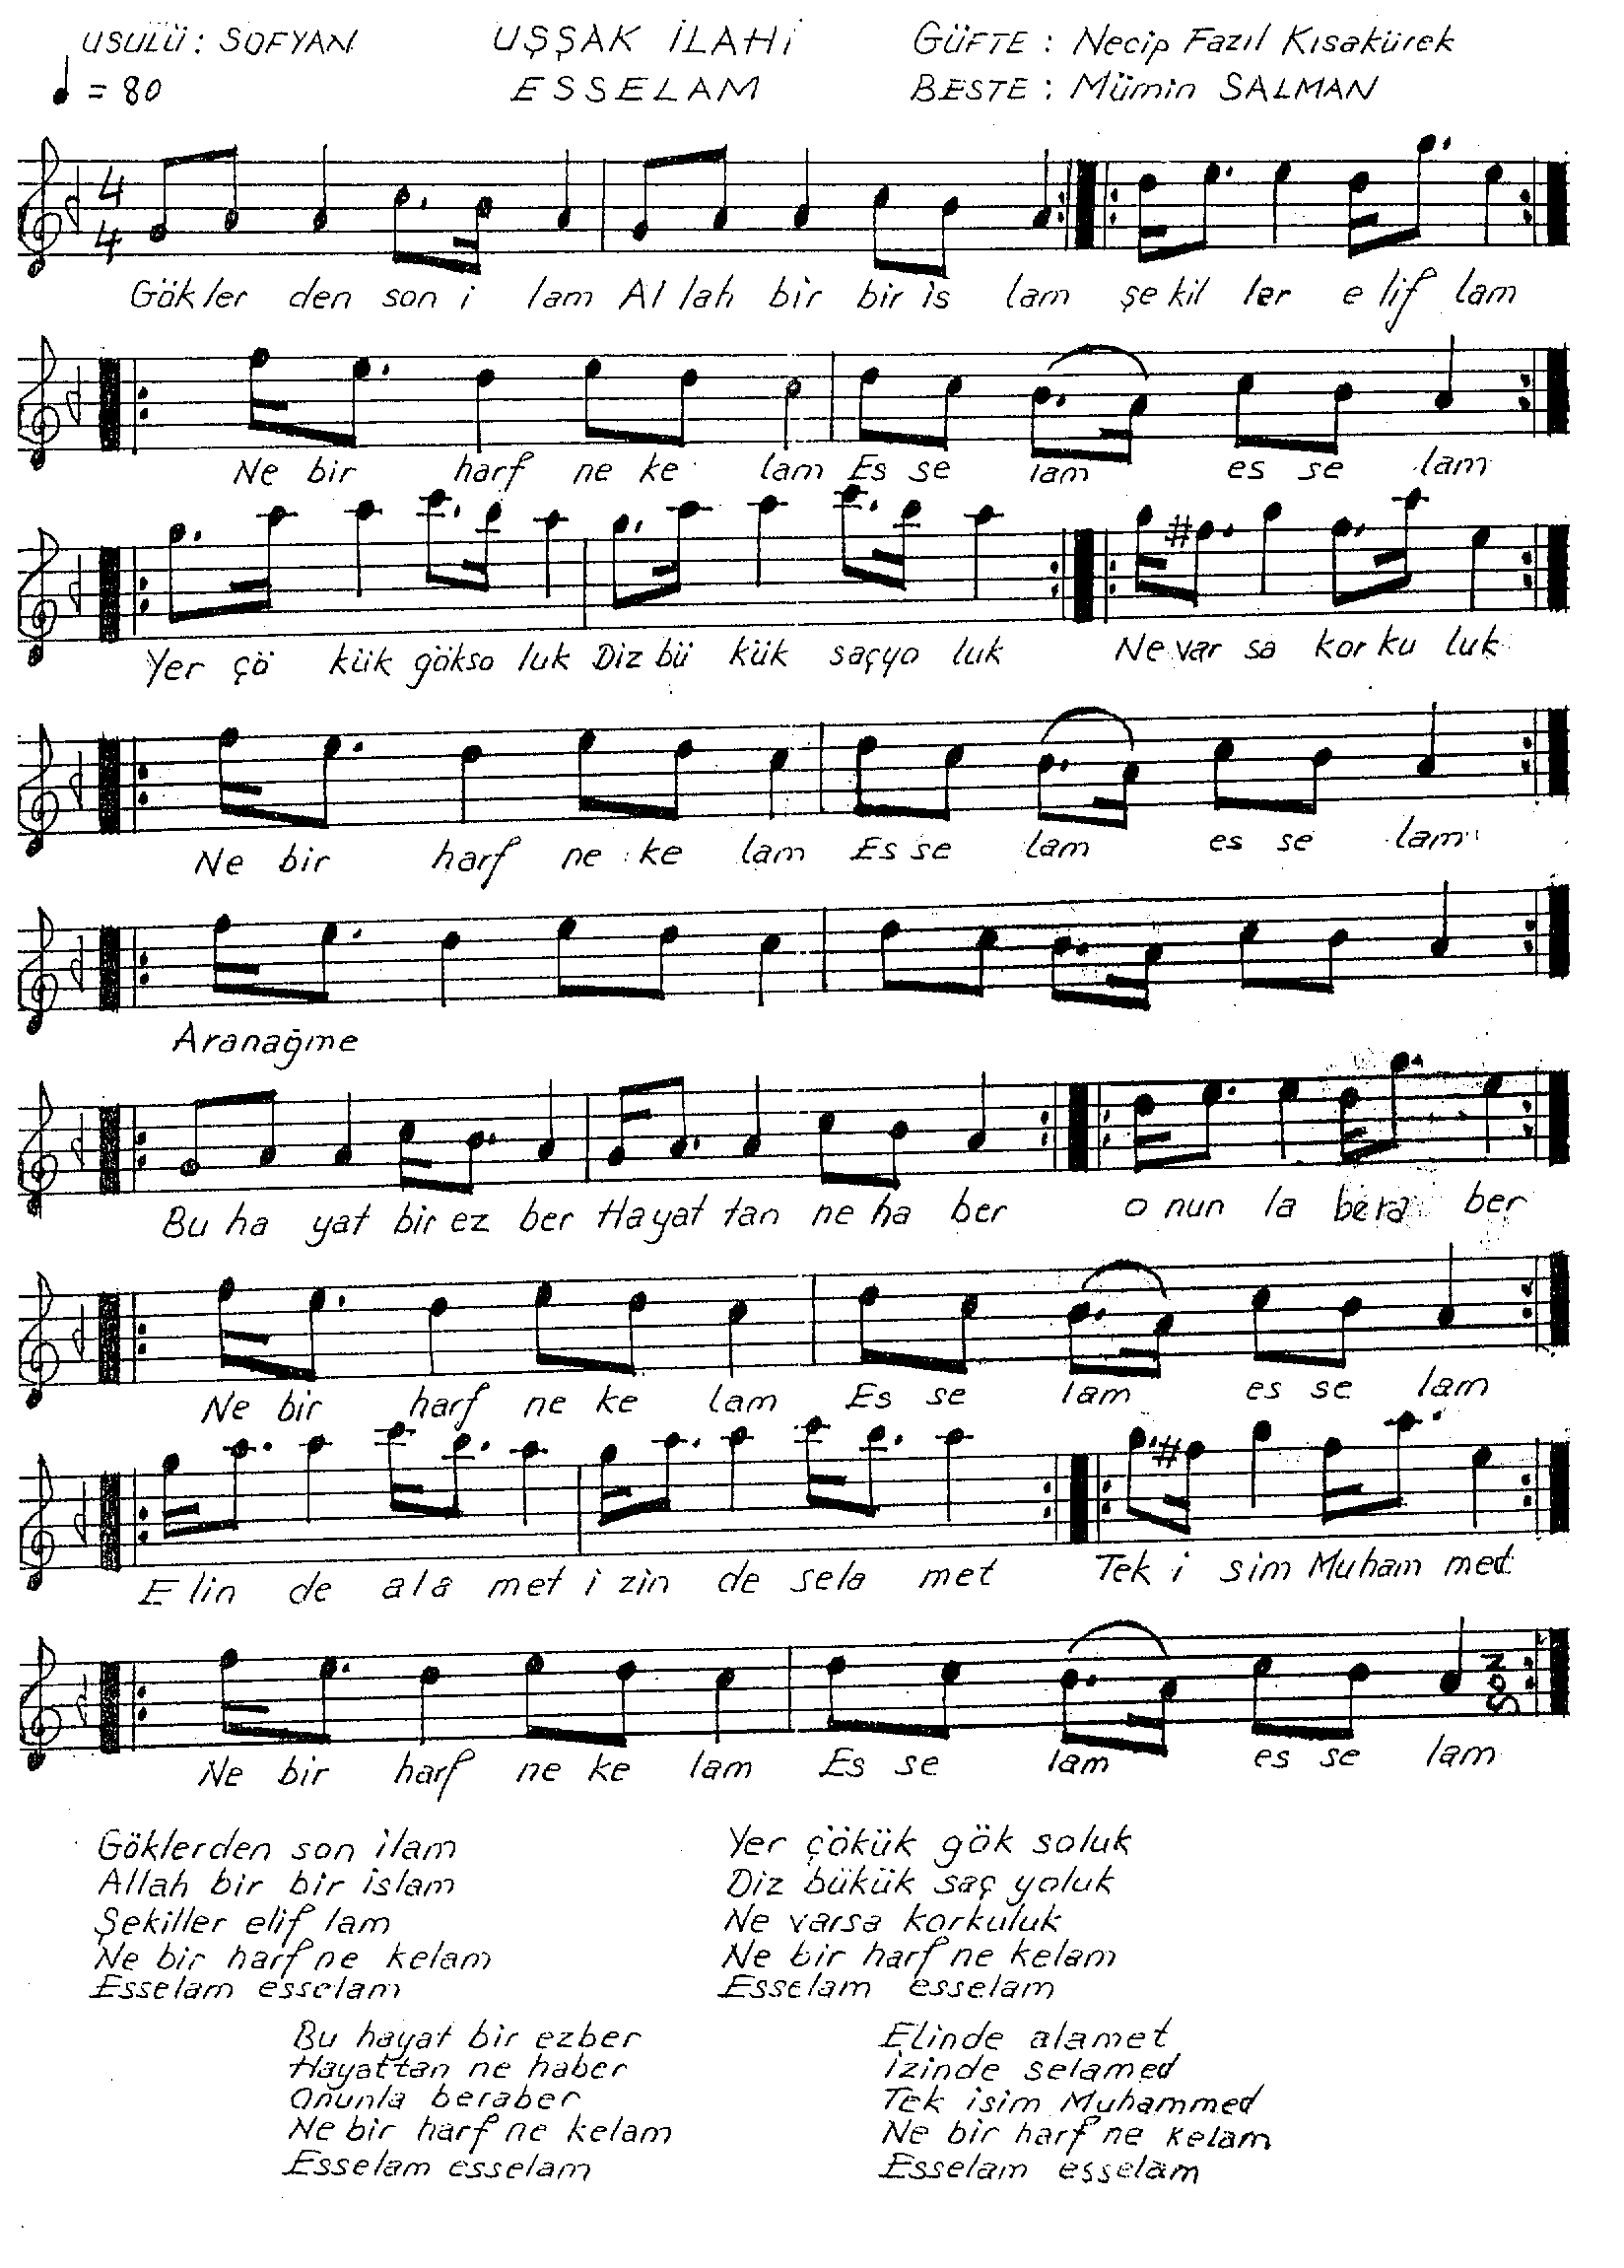 USULÜ : SOFYAN
= 80
UŞŞAK İLAHİ
ESSELAM
GÜFTE : Necip Fazıl Kısakürek
BESTE : Mümin SALMAN
4
4
Gök ler den son i lam Al lah bir bir is lam şe kil ler e lif lam
Ne bir harf ne ke lam Es se lam es se lam
Yer çö kük gök so luk Diz bü kük saç yo luk Ne var sa kor ku luk
Ne bir harf ne ke lam Es se lam es se lam
Aranağme
Bu ha yat bir ez ber Hayat tan ne ha ber o nun la bera ber
Ne bir harf ne ke lam Es se lam es se lam
E lin de a la met i zin de sela met Tek i sim Muham med
Ne bir harf ne ke lam Es se lam es se lam
SON
Göklerden son ilam
Allah bir bir islam
Şekiller elif lam
Ne bir harf ne kelam
Esselam esselam
Yer çökük gök soluk
Diz bükük saç yoluk
Ne varsa korkuluk
Ne bir harf ne kelam
Esselam esselam
Bu hayat bir ezber
Hayattan ne haber
Onunla beraber
Ne bir harf ne kelam
Esselam esselam
Elinde alamet
İzinde selamed
Tek isim Muhammed
Ne bir harf ne kelam
Esselam esselam